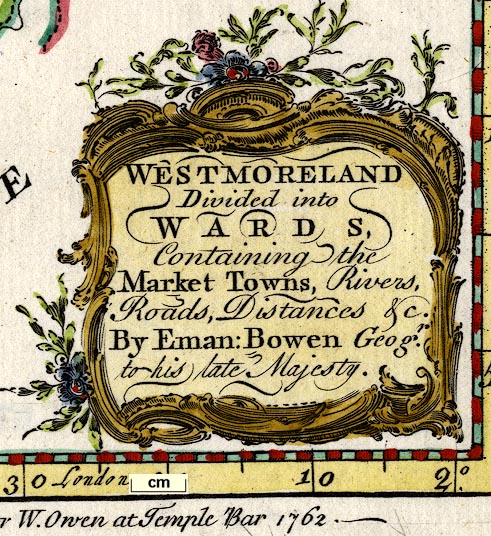 E
WESTMORELAND
Divided into
WARDS,
Containing the
Market Towns, Rivers,
Roads, Distances &c.
By Eman: Bowen Geogr.
to his late Majesty.
30 London 10 2°
cm
r W. Owen at Temple Bar 1762.